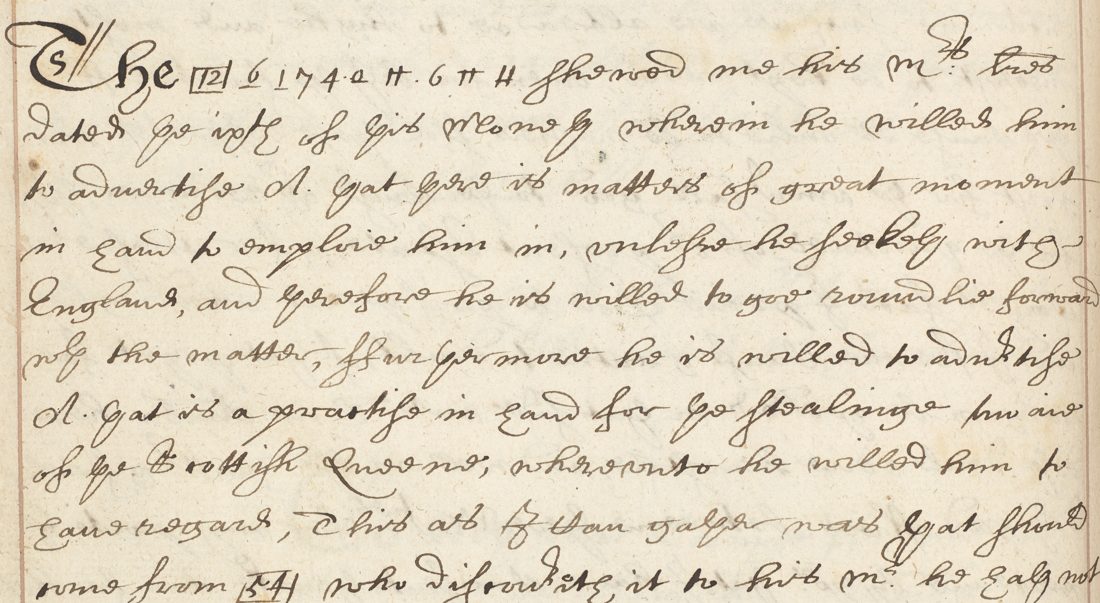 The [12] 6 174·2 H·6 H H shewed me his Mrs: lres
dated þe ixth of þis Moneþ wherein he willed him
to advertise A. þat þere is matters of great moment
in hand to emploie him in, vnlesse he seekeþ with
England, and þerefore he is willed to goe roundlie forward
wþ the matter, ffurþermore he is willed to adutise
A. þat is a practise in hand for þe stealinge awaie
of þe Scottish Queene, wherevnto he willed him to
haue regard, This as I can gaþer was þat should
come from [54] who discoureth it to his Mr: he haþ not